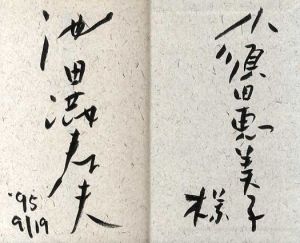 小須田恵美子
様
池田満寿夫
'95
9/19